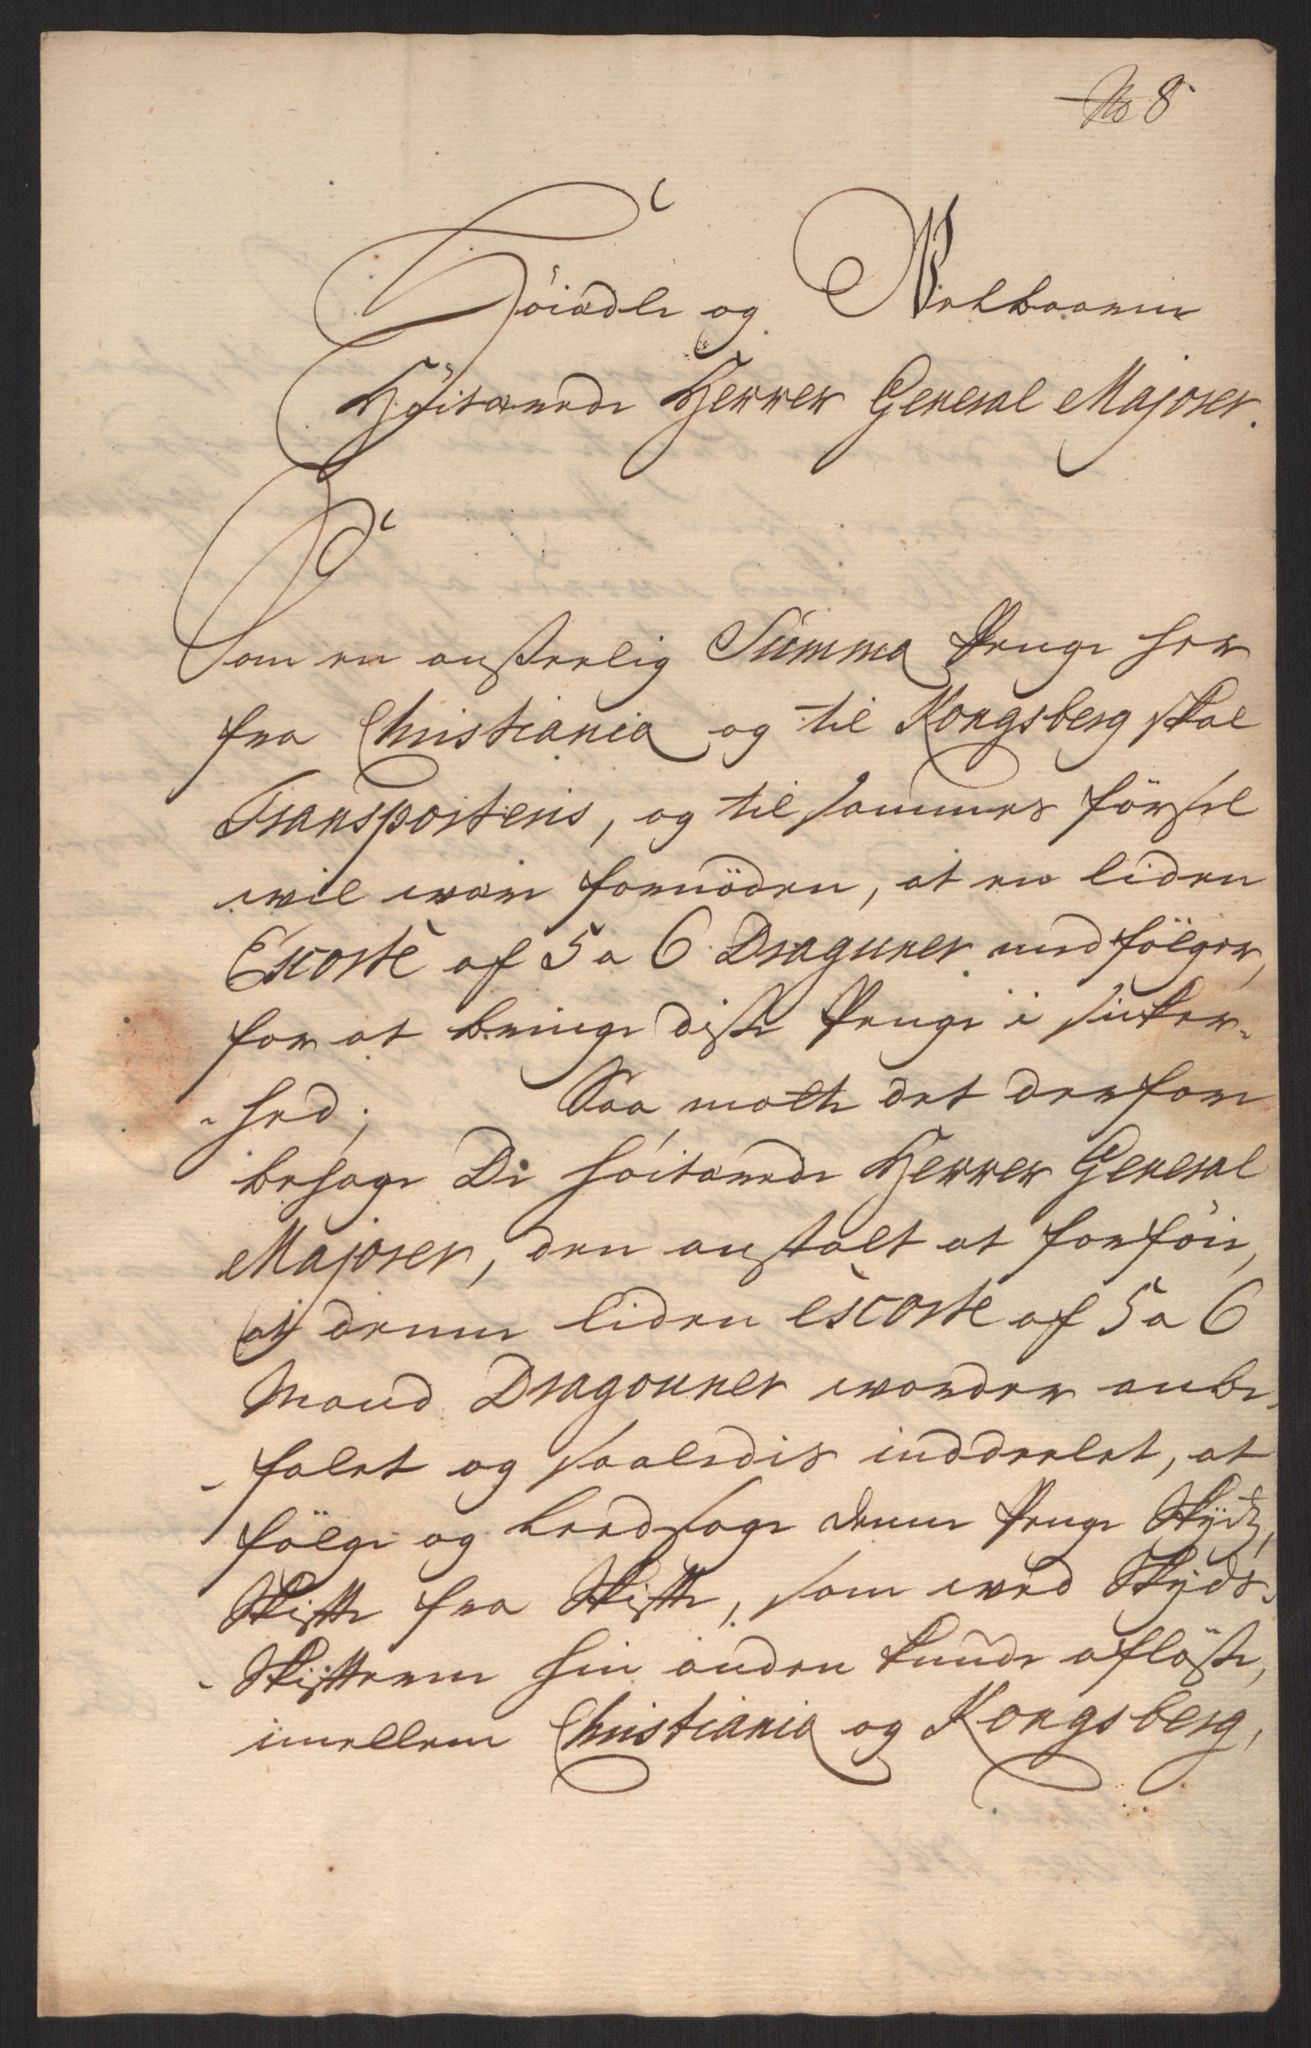 No 8
Höiædle og Velbaarne
Höitærede Herrer General Majorer.
Som en anseelig Summa Penge her
fra Christiania og til Kongsberg skal
Transporteris, og til sammes försel
vil være fornöden, at en liden
Escorte af 5 a 6 Dragoner medfölger,
for at bringe disse Penge i sicker-
-hed; Saa matte det derfore
behage De höitærede Herrer General
Majorer, den anstalt at forföie,
at denne liden Escorte af 5 a 6
Mand Dragouner vorder anbe-
-falet og saaledis inddeelet, at
fölge og leedsage denne Penge Skydz,
Skifte fra Skifte, som ved Skyds-
-Skifterne hin anden kunde aflöse,
imellem Christiania og Kongsberg,